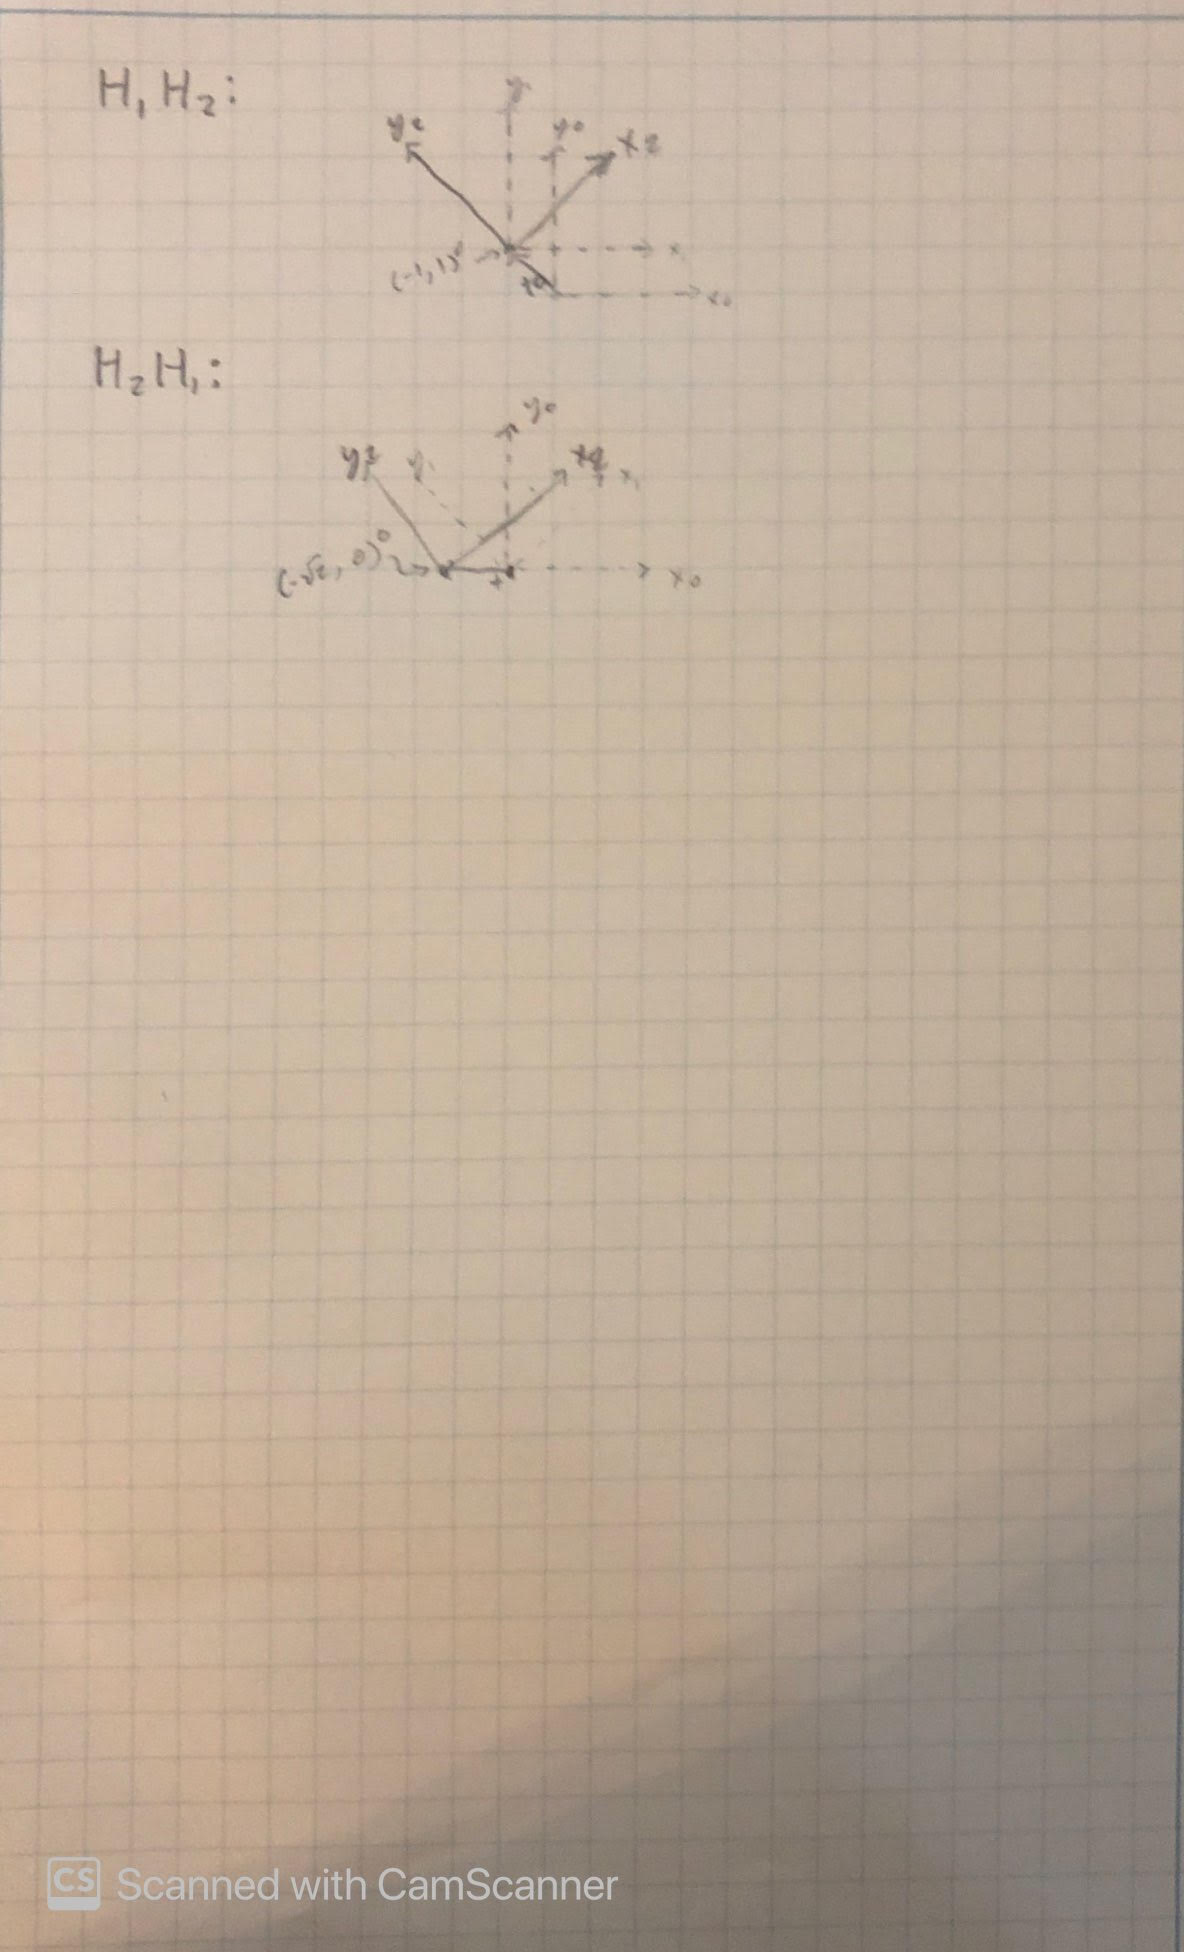 H₁ H₂:
y₁
y₂ y₀ x₂
(-1, 1)⁰ x₁
x₀
H₂ H₁:
y₀
y₂ y₁ x₁
(-√2, 0)⁰ x₀
CS Scanned with CamScanner